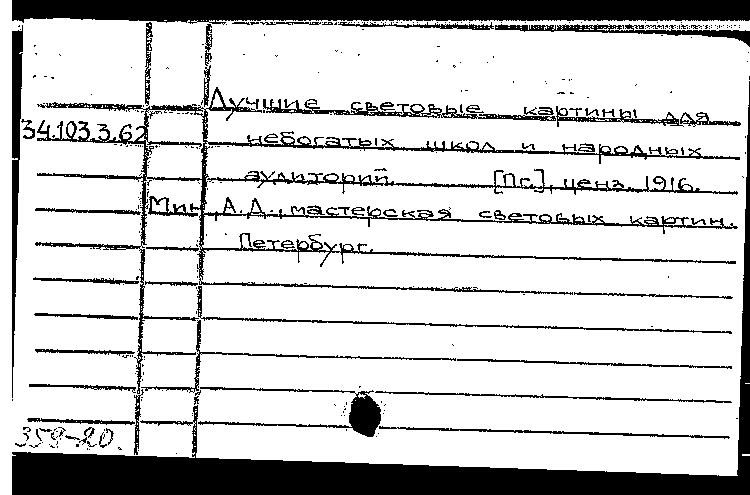 Лучшие световые картины для
34.103.3.62 небогатых школ и народных
аудиторий. [Пг.], ценз. 1916.
Мин, А.Д., мастерская световых картин.
Петербург.
359-20.